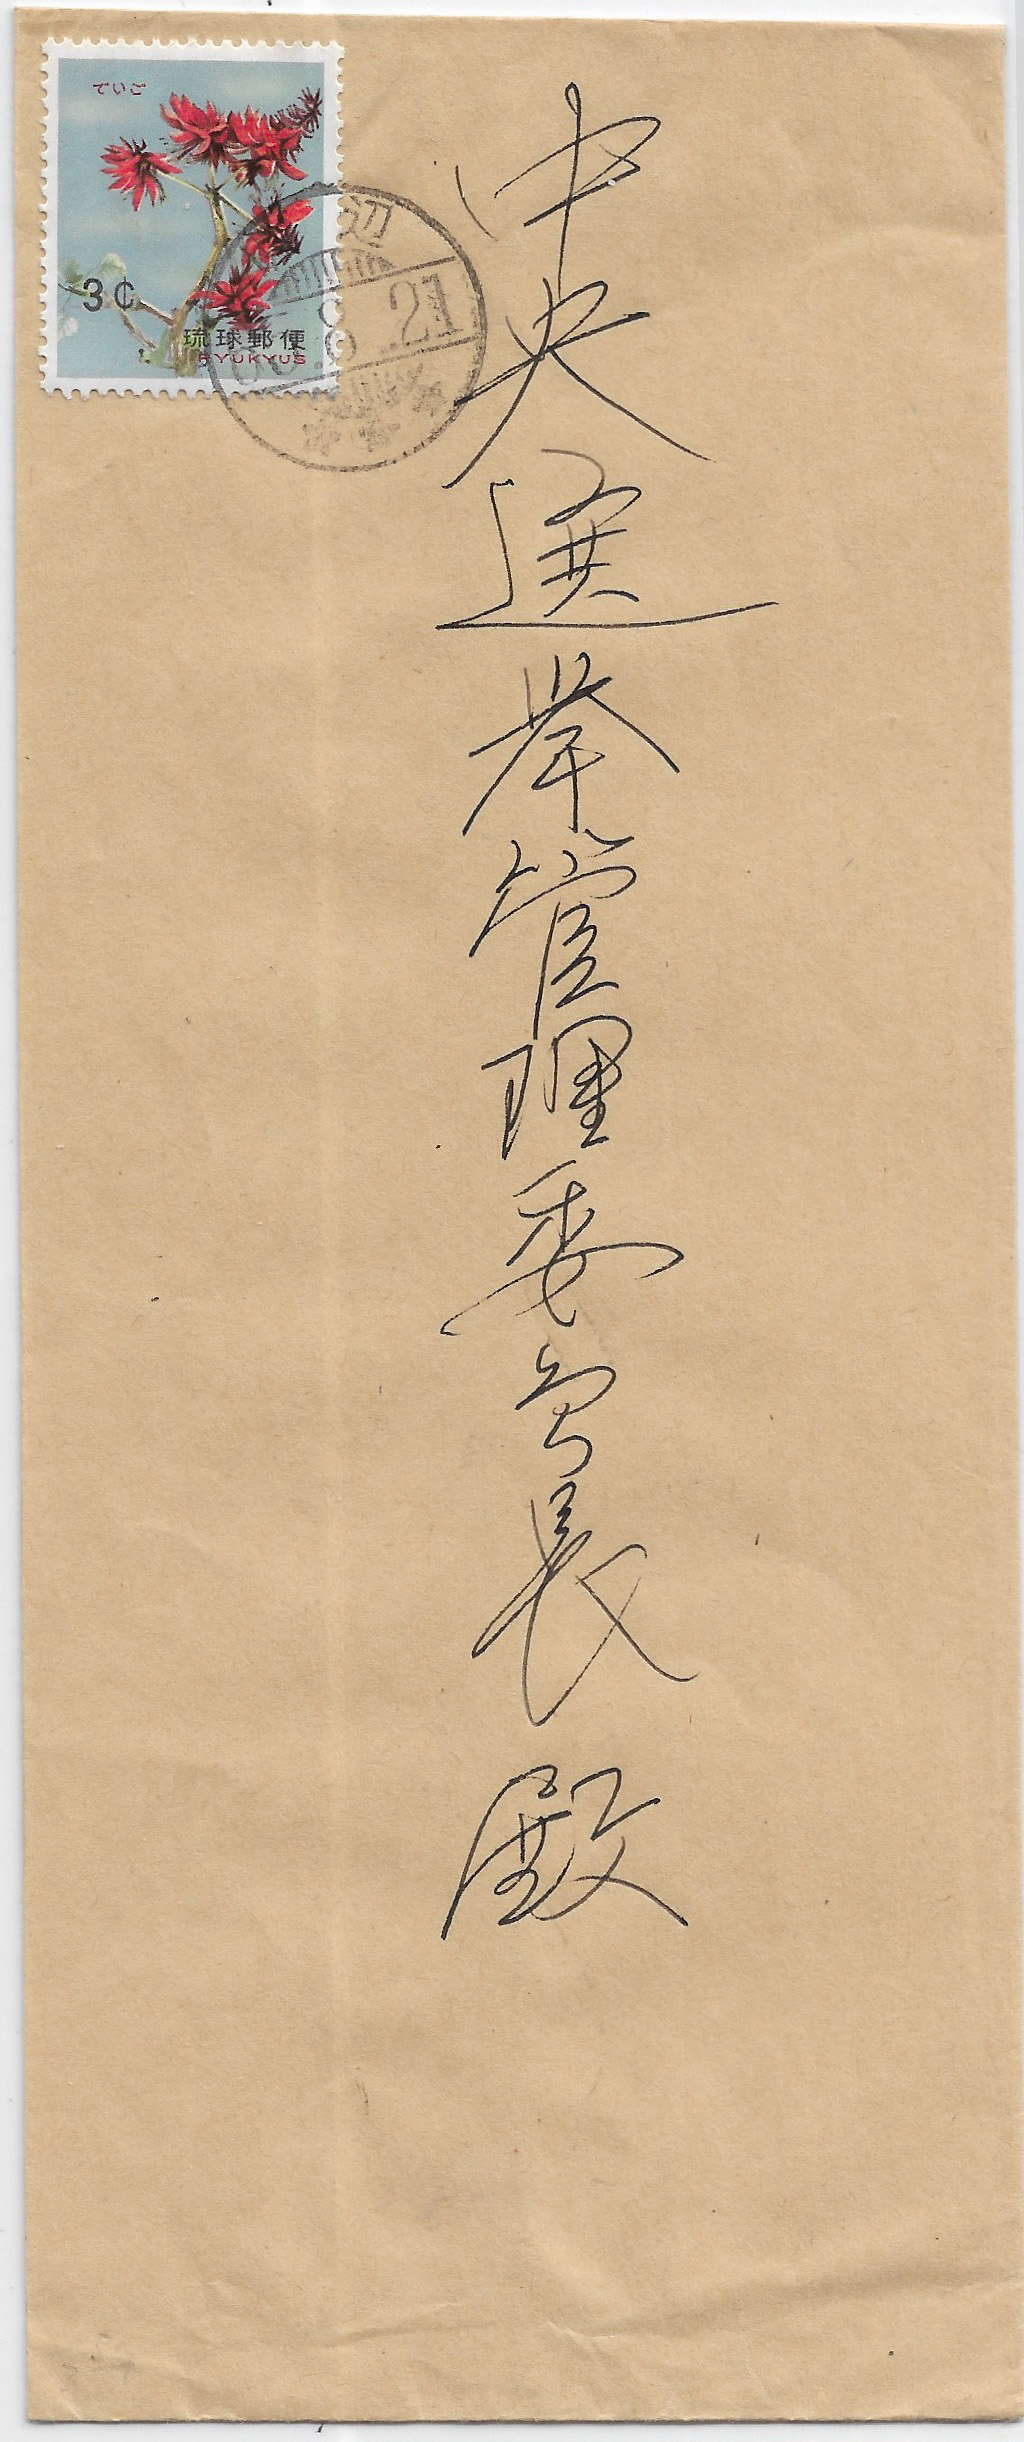 でいご
3¢
琉球郵便
RYUKYUS
辺
.21
中央選挙管理委員長殿